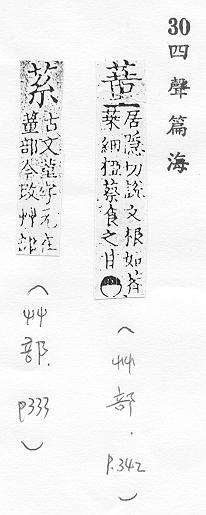 30四聲篇海
居隱切說文根如薺
葉細柳蒸食之甘
(艸部.P.342)
古文堇字元在
堇部今改艸部
(艸部.p333)